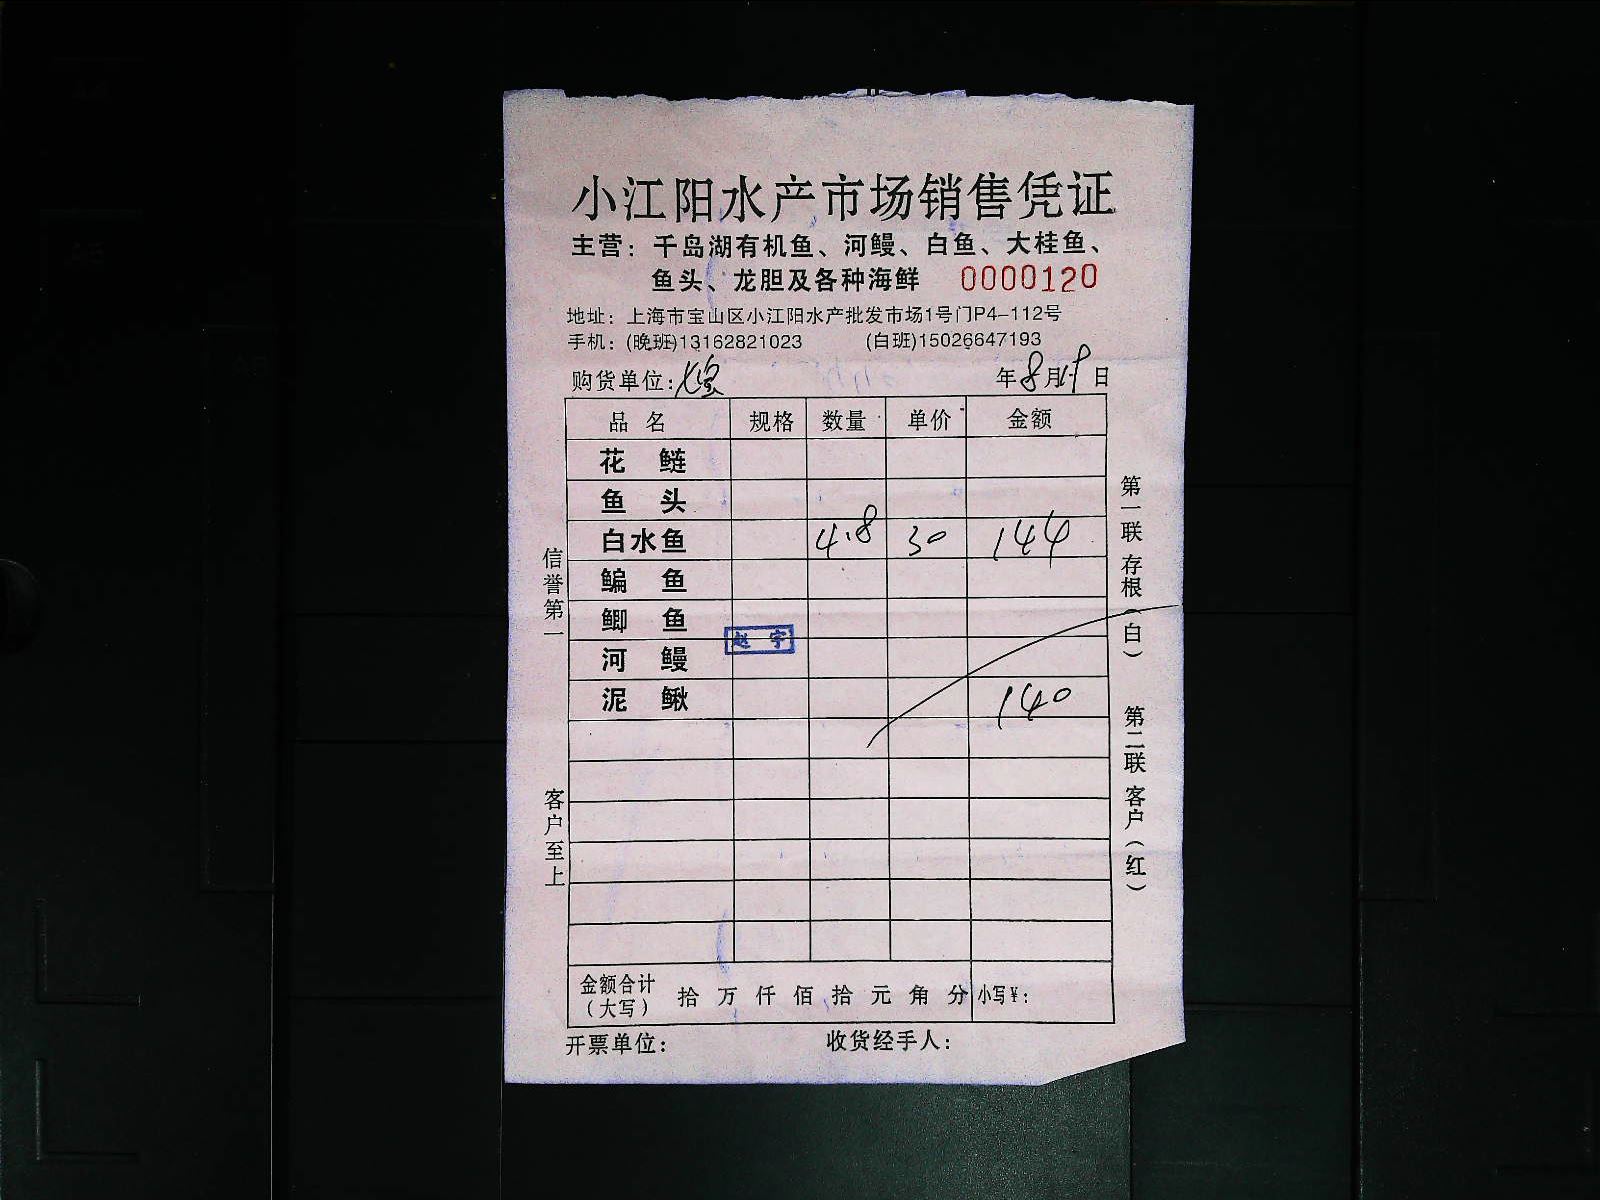 小江阳水产市场销售凭证
主营：千岛湖有机鱼、河鳗、白鱼、大桂鱼、
鱼头、龙胆及各种海鲜 0000120
地址：上海市宝山区小江阳水产批发市场1号门P4-112号
手机：(晚班)13162821023 (白班)15026647193
购货单位： 年8月19日
品名 规格 数量 单价 金额
花鲢
鱼头
白水鱼 4.8 30 144
鳊鱼
鲫鱼
赵宇
河鳗
泥鳅 140
金额合计
（大写） 拾万仟佰拾元角分 小写￥：
开票单位： 收货经手人：
信誉第一
客户至上
第一联 存根（白）
第二联 客户（红）